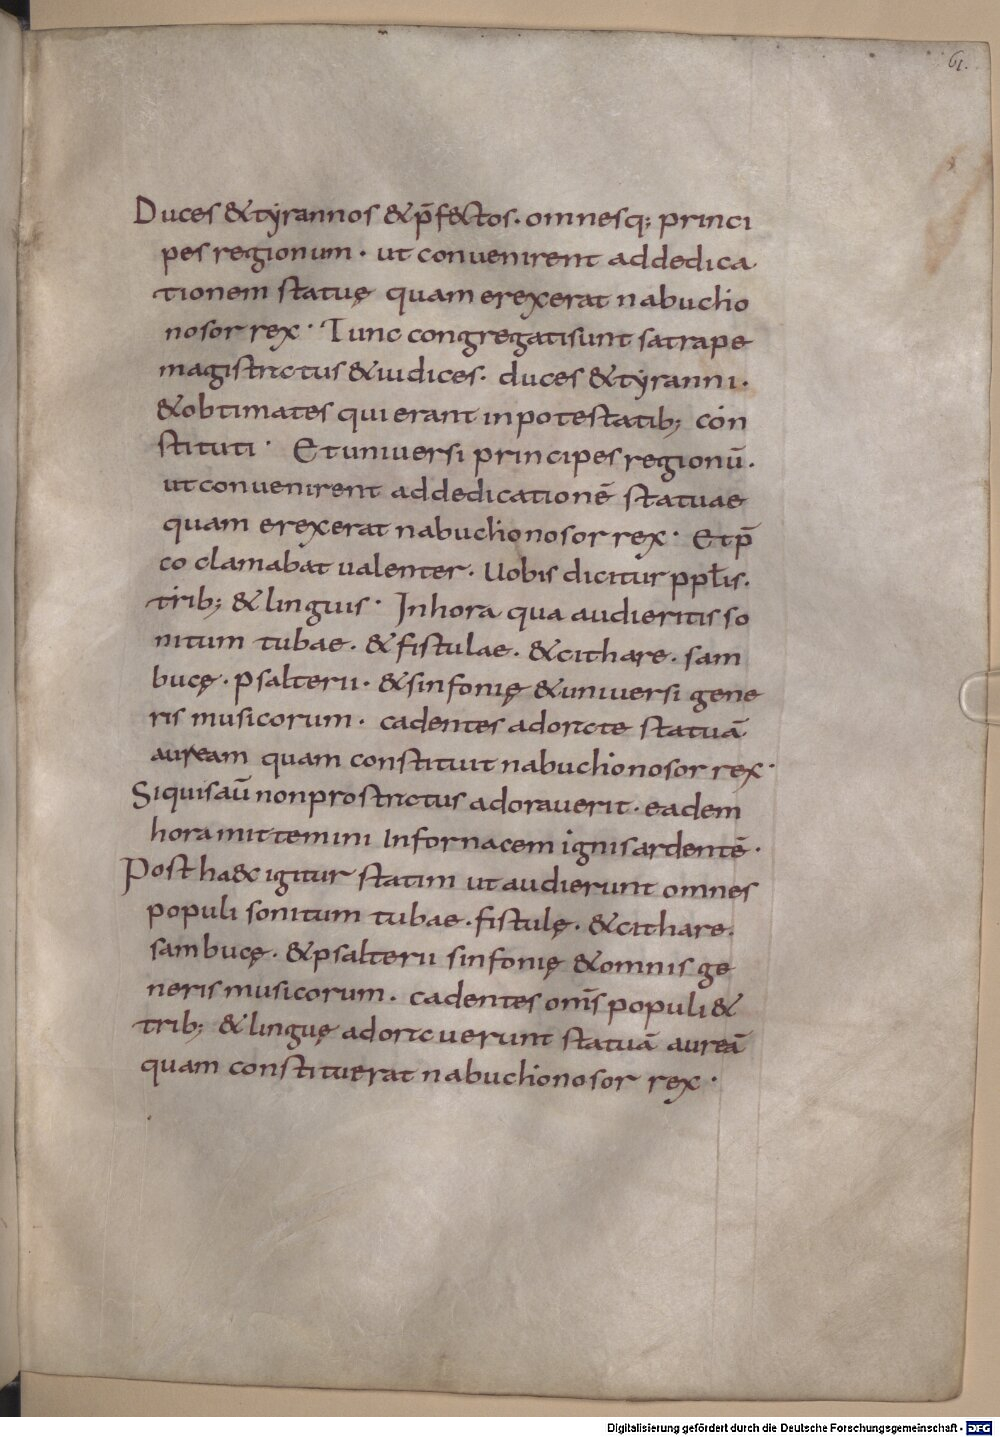 61.
Duces & tyrannos & p̄f&ctos · omnesq; princi
pes regionum · ut convenirent ad dedica
tionem statuę quam erexerat nabucho
nosor rex · Tunc congregati sunt satrape
magistratus & iudices · duces & tyranni ·
& obtimates qui erant in potestatib; con
stituti · Et universi principes regionū ·
ut convenirent ad dedicationē statuae
quam erexerat nabuchonosor rex · Et p̄
co clamabat valenter · Vobis dicitur pplis ·
trib; & linguis · In hora qua audieritis so
nitum tubae · & fistulae · & cithare · sam
bucę · psalterii · & sinfonię & universi gene
ris musicorum · cadentes adorate statuā
auream quam constituit nabuchonosor rex ·
Si quis aū non prostratus adoraverit · eadem
hora mittemini In fornacem ignis ardentē ·
Post ha&c igitur statim ut audierunt omnes
populi sonitum tubae · fistulę · & cithare ·
sambucę · & psalterii sinfonię & omnis ge
neris musicorum · cadentes om̄s populi &
trib; & linguę adoraverunt statuā aureā
quam constituerat nabuchonosor rex ·
Digitalisierung gefördert durch die Deutsche Forschungsgemeinschaft - DFG